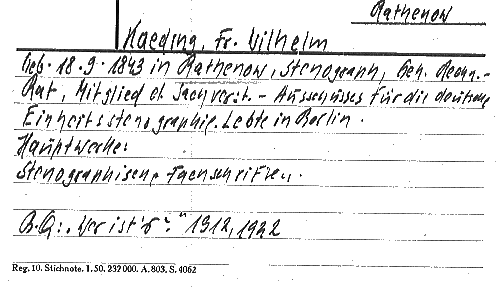 Rathenow
Kaeding, Fr. Wilhelm
Geb. 18.9.1843 in Rathenow, Stenograph, Geh. Rechn.-
Rat, Mitglied d. Sachverst.-Ausschusses für die deutsche
Einheitsstenographie. Lebte in Berlin.
Hauptwerke:
Stenographische Fachschriften.
B.Q.: „Wer ist's?" 1912, 1922
Reg. 10. Stichnote. 1. 50. 232000. A. 803. S. 4062